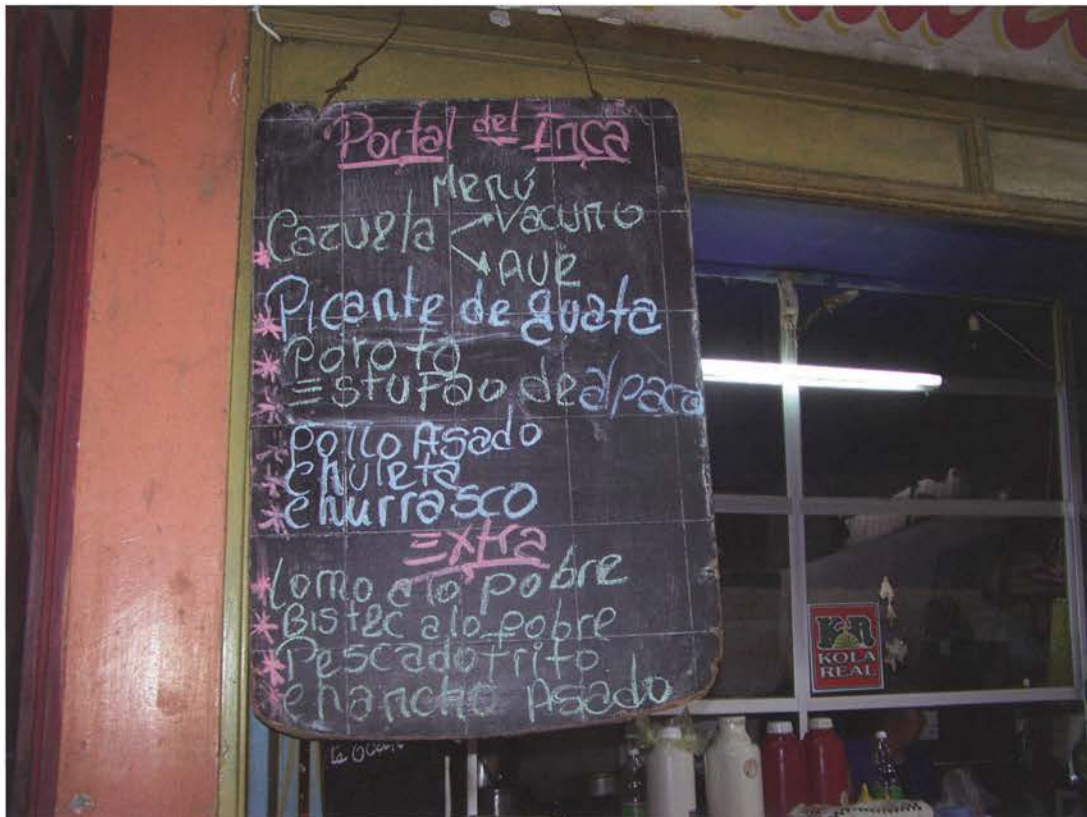 Portal del Inca
Menú
Cazuela Vacuno
Ave
Picante de guata
Poroto
Estufao de alpaca
Pollo Asado
chuleta
churrasco
Extra
Lomo a lo pobre
Bistec a lo pobre
Pescado Frito
chancho Asado
KR
KOLA
REAL